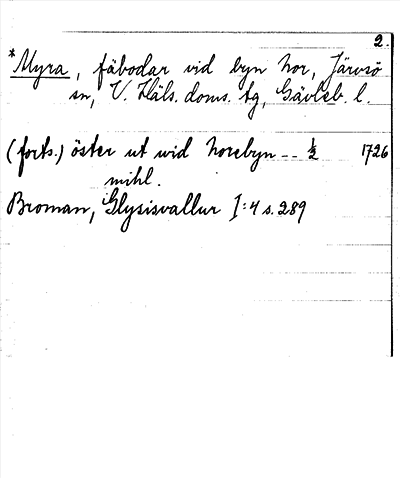 2.
*Myra, fäbodar vid byn Nor, Järvsö
sn, V. Häls. doms. tg, Gävleb. l.
(forts.) öster ut wid Norebyn -- ½ 1726
mihl.
Broman, Glysisvallur I:4 s. 289